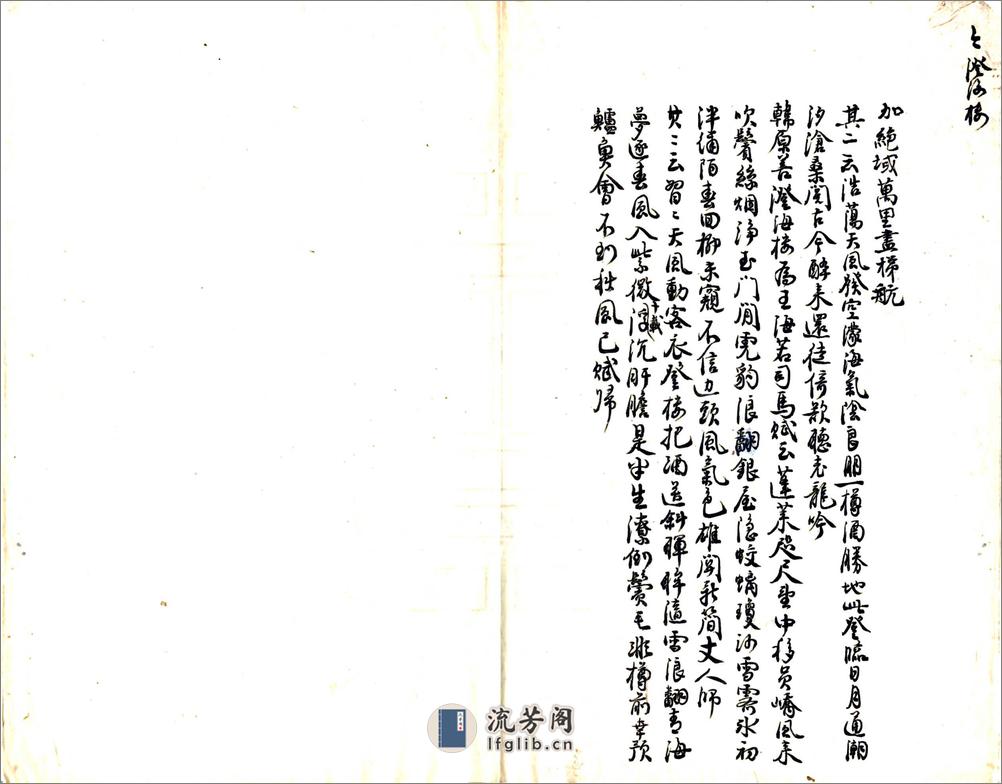 澄海樓
加絶域萬里盡梯航
其二云浩蕩天風發空濛海氣陰良朋一樽酒勝地此登臨日月通潮
汐滄桑閱古今醉來還徒倚歌聽老龍吟
韓原善澄海樓爲王海若司馬賦云蓬萊咫尺坐中移員嶠風來
吹鬢絲烟淨玉門閒虎豹浪翻銀屋隐蛟螭瓊沙雪霽氷初
泮繡陌春回柳未窺不信边頭風氣色雄關新簡丈人師
其二云習習天風動客衣登樓把酒送斜暉眸隨雪浪翻青海
夢逐春風入紫微十載浮沉肝膽是半生潦倒鬢毛非樽前幸預
鱸魚會不到秋風已賦歸
流芳阁
lfglib.cn